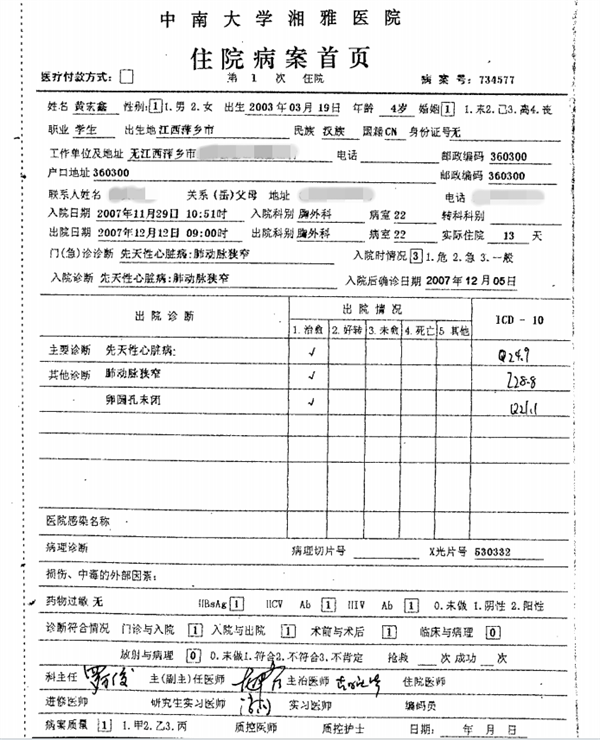 中南大学湘雅医院
住院病案首页
医疗付款方式: 第 1 次 住院 病案号: 734577
姓名 黄宏鑫 性别: 1 1.男 2.女 出生 2003年03月19日 年龄 4岁 婚姻 1 1.未2.已3.离4.丧
职业 学生 出生地江西萍乡市 民族 汉族 国籍CN 身份证号无
工作单位及地址 无江西萍乡市 电话 邮政编码 360300
户口地址360300 邮政编码 360300
联系人姓名 关系 (岳)父母 地址 电话
入院日期 2007年11月29日 10:51时 入院科别 胸外科 病室 22 转科科别
出院日期 2007年12月12日 09:00时 出院科别 胸外科 病室 22 实际住院 13 天
门(急)诊诊断 先天性心脏病:肺动脉狭窄 入院时情况 3 1.危 2.急 3.一般
入院诊断 先天性心脏病:肺动脉狭窄 入院后确诊日期 2007年12月05日
出院诊断 出院情况 ICD-10
1.治愈 2.好转 3.未愈 4.死亡 5.其他
主要诊断 先天性心脏病: ✓ Q24.9
其他诊断 肺动脉狭窄 ✓
卵圆孔未闭 ✓ Q21.1
医院感染名称
病理诊断 病理切片号 X光片号 530332
损伤、中毒的外部因素:
药物过敏 无 HBsAg 1 HCV Ab 1 HIV Ab 1 0.未做 1.阴性 2.阳性
诊断符合情况 门诊与入院 1 入院与出院 1 术前与术后 1 临床与病理 0
放射与病理 0 0.未做1.符合2.不符合3.不肯定 抢救 次 成功 次
科主任 主(副主)任医师 主治医师 住院医师
进修医师 研究生实习医师 实习医师 编码员
病案质量 1 1.甲2.乙3.丙 质控医师 质控护士 日期: 年 月 日